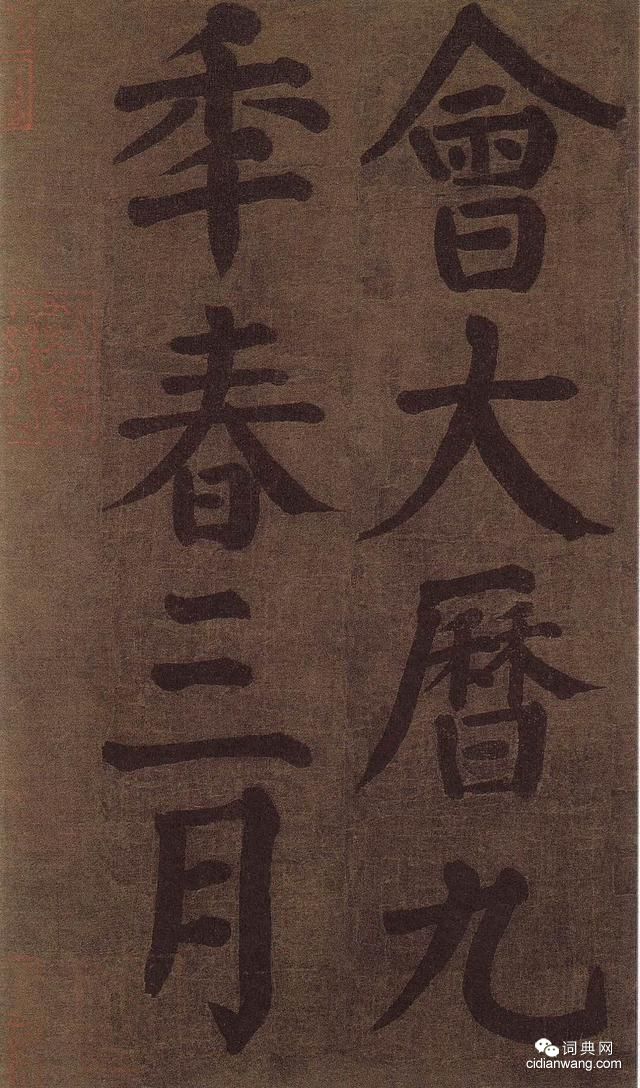 會大曆九
年春三月
词典网
cidianwang.com